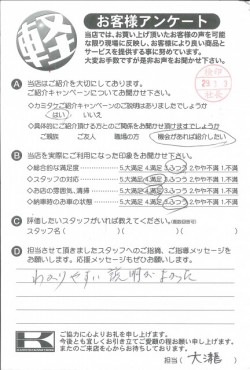 軽
お客様アンケート
当店では、お買い上げ頂いたお客様の声を可能な限り現場に反映し、お客様により良い商品とサービスを提供する事に努めています。
大変お手数ですが是非お声をお聞かせ下さい。
A 当店はご紹介を大切にしております。
ご紹介キャンペーンについてお聞かせ下さい。
◇カミタケご紹介キャンペーンのご説明はありましたでしょうか
はい いいえ
◇具体的にご紹介頂ける方とのご関係をお聞かせ頂けますでしょうか
ご親族 ご友人 職場の方 機会があれば紹介したい
B 当店を実際にご利用になった印象をお聞かせ下さい。
◇総合的な満足度 5.大満足 4.満足 3.ふつう 2.やや不満 1.不満
◇スタッフの対応 5.大満足 4.満足 3.ふつう 2.やや不満 1.不満
◇お店の雰囲気、清掃 5.大満足 4.満足 3.ふつう 2.やや不満 1.不満
◇納車時のお車の状態 5.大満足 4.満足 3.ふつう 2.やや不満 1.不満
C 評価したいスタッフがいれば教えてください。
スタッフ名( )( )( )
D 担当させて頂きましたスタッフへのご指摘、ご指導メッセージをお願いします。応援メッセージもぜひお願いします。
わかりやすい説明がよかった
K
ご協力に心よりお礼を申し上げます。
今後とも宜しくお引き立てご愛顧の程お願い申し上げます。
またのご来店を心からお待ちしております。
担当(大瀧)